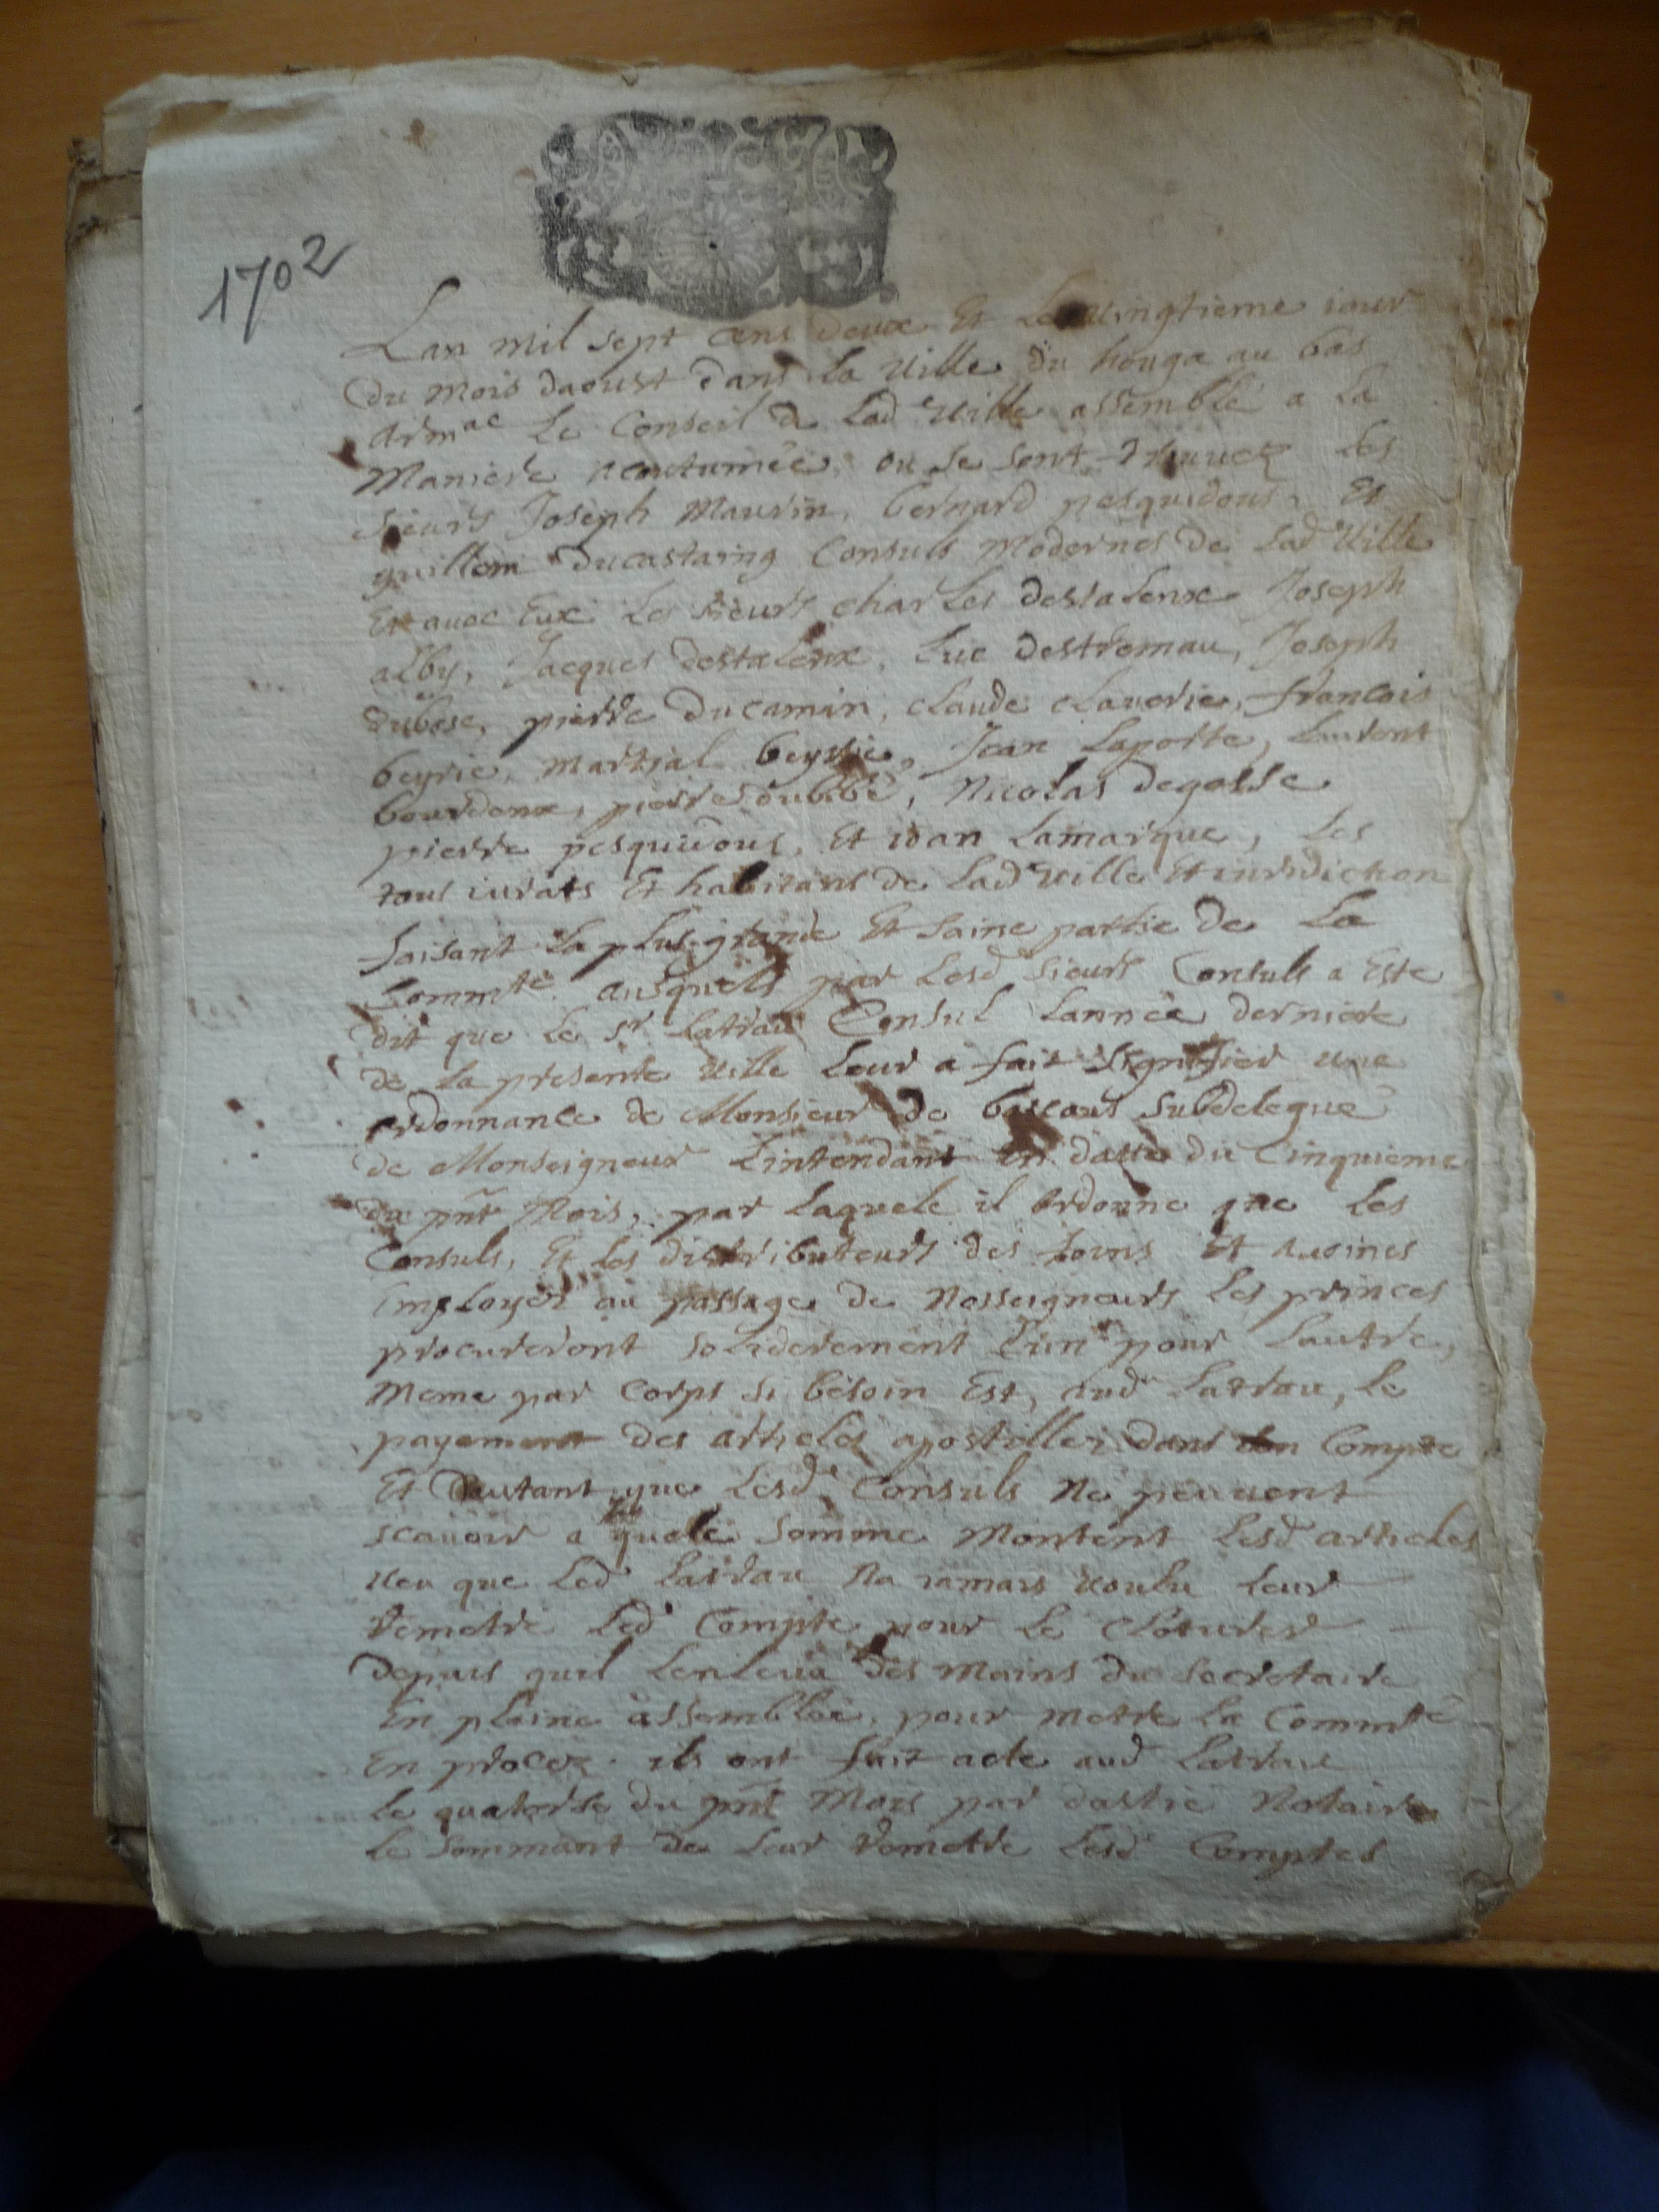 1702
Lan mil sept cens deux Et Le vingtieme iour
du mois daoust dans la ville du houga au bas
armac Le Conseil de Lade ville assemblé a La
Maniere acoutumée, ou se sont trouuez les
sieurs Joseph Maurin, bernard pesquidous Et
guillem ducastaing Consuls Modernes de Lade Ville
Et auec Eux Les sieurs charles destalenx Joseph
alby, Jacques destalenx, Luc destremau, Joseph
dubosc, pierre ducamin, claude clauerie, francois
beyrie, martial beyrie, Jean Laporte, Laurent
bourdenx, pierre dubibé, Nicolas degosse
pierre pesquidous, Et iean Lamarque, Les
tous iurats Et habitans de Lade ville Et iuridiction
faisant la plus grande Et saine partie de La
Commté. ausquels par Lesd sieurs Consuls a Este
dit que Le sr Latrau Consul Lannée derniere
de La presente ville Leur a fait signifier une
ordonnance de Monsieur de bascous subdelegué
de Monseigneur Lintendant en datte du Cinquieme
du pnt Mois, par Laquele il ordonne que Les
Consuls, Et Les distributeurs des foins Et auoines
Employés au passage de Nosseigneurs Les princes
procureront soliderement Lun pour Lautre,
meme par Corps si besoin Est, aud Latrau, Le
payement des articles apostillez dans son Compte
Et dautant que Lesd Consuls Ne peuuent
scauoir a quele somme Montent Lesd articles
veu que Led Latrau Na iamais voulu Leur
remetre Led Compte pour Le Cloturer
depuis quil Lenleua des mains du secretaire
En pleine assemblée, pour metre La Commté
En procez. ils ont fait acte aud Latrau
Le quatorse du pnt Mois par dastié Notaire
Le sommant de Leur remetre Lesd Comptes